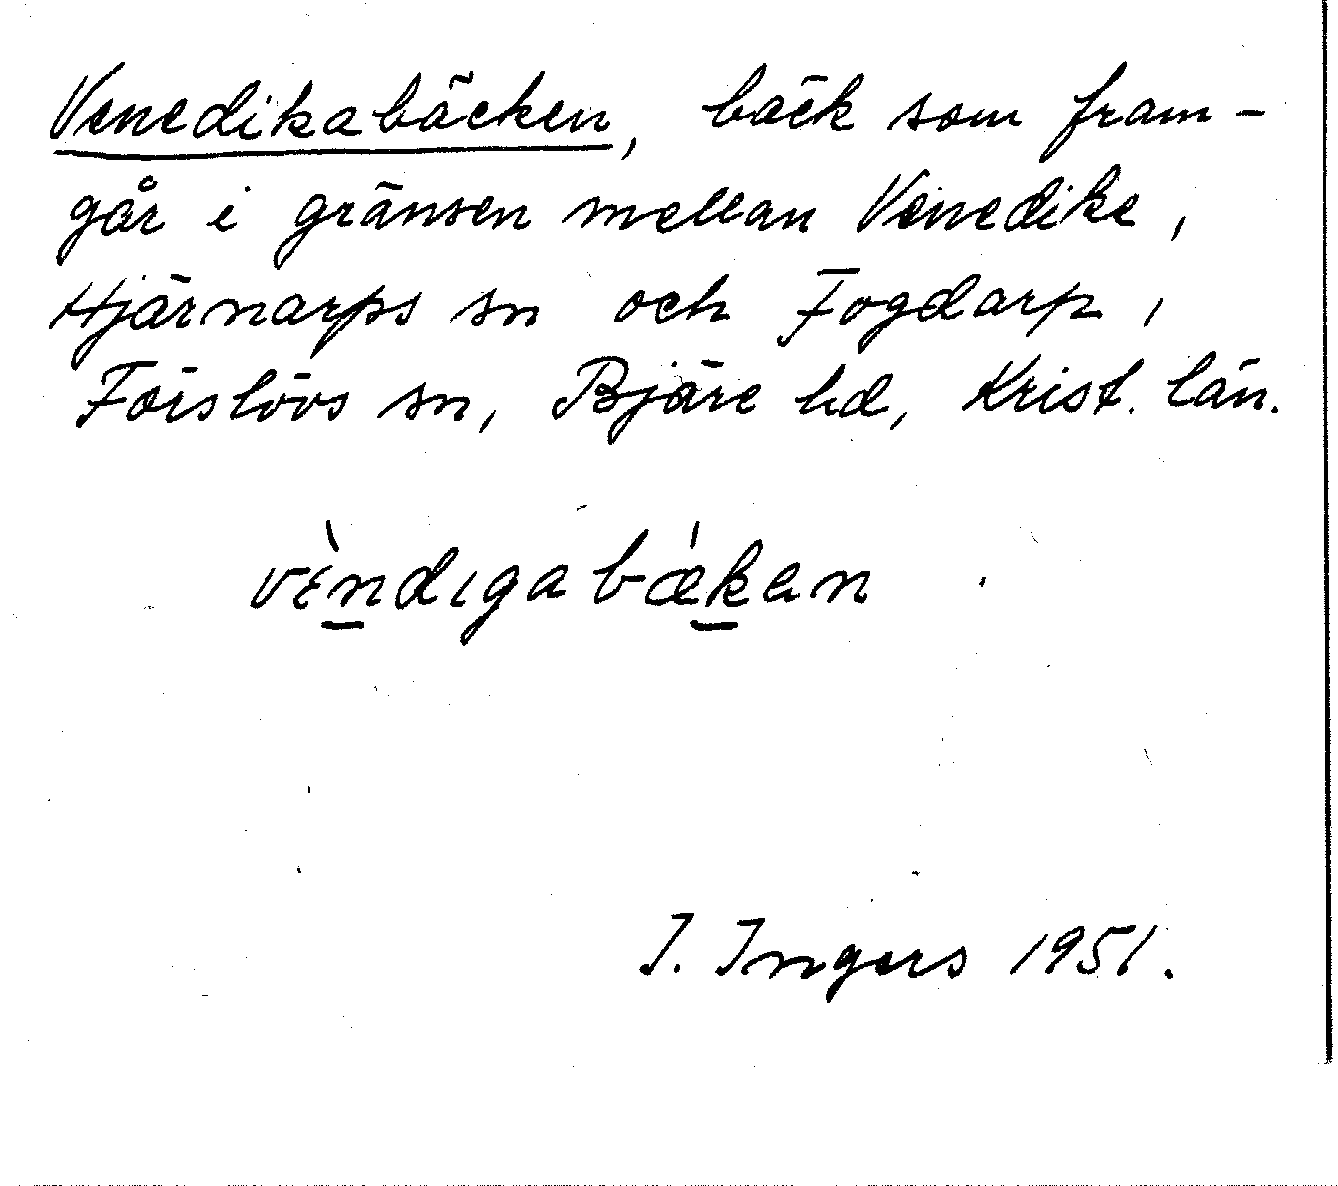 Venedikabäcken, bäck som fram-
går i gränsen mellan Venedike,
Hjärnarps sn och Fogdarp,
Förslövs sn, Bjäre hd, Krist. län.
vɛ̀ndıgabækan
I. Ingers 1951.